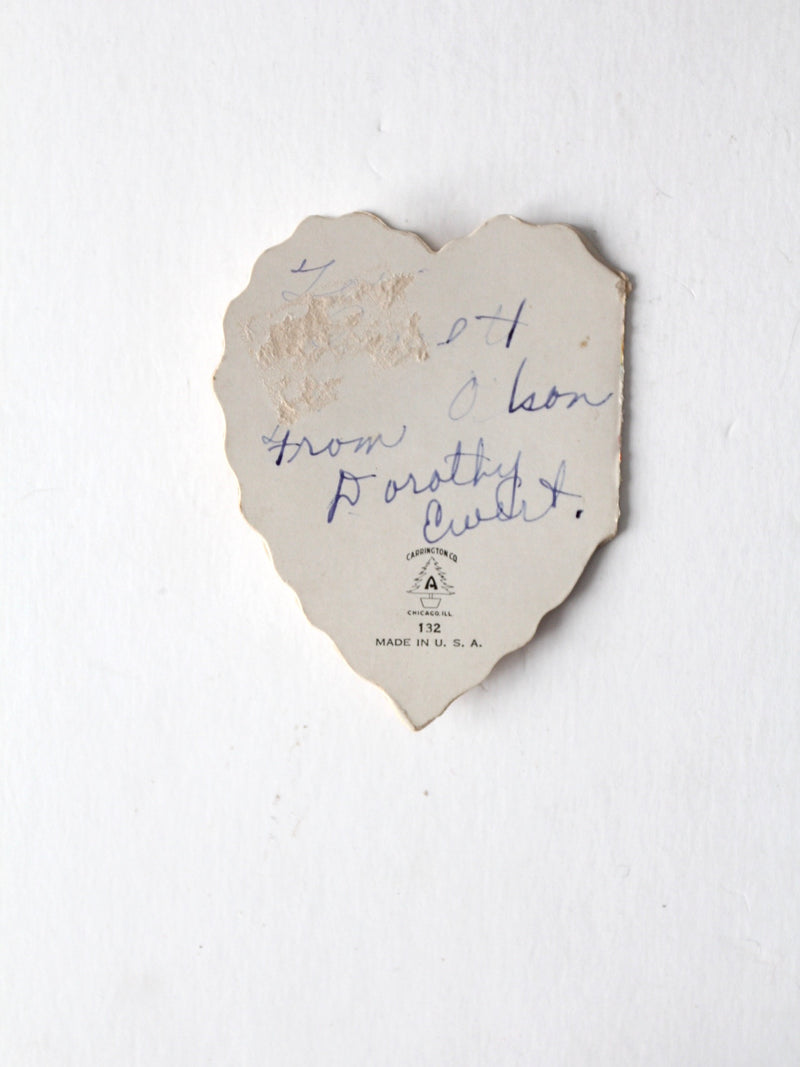 ett
Olson
From
Dorothy
Ewert.
CARRINGTON CO.
A
CHICAGO, ILL.
132
MADE IN U. S. A.